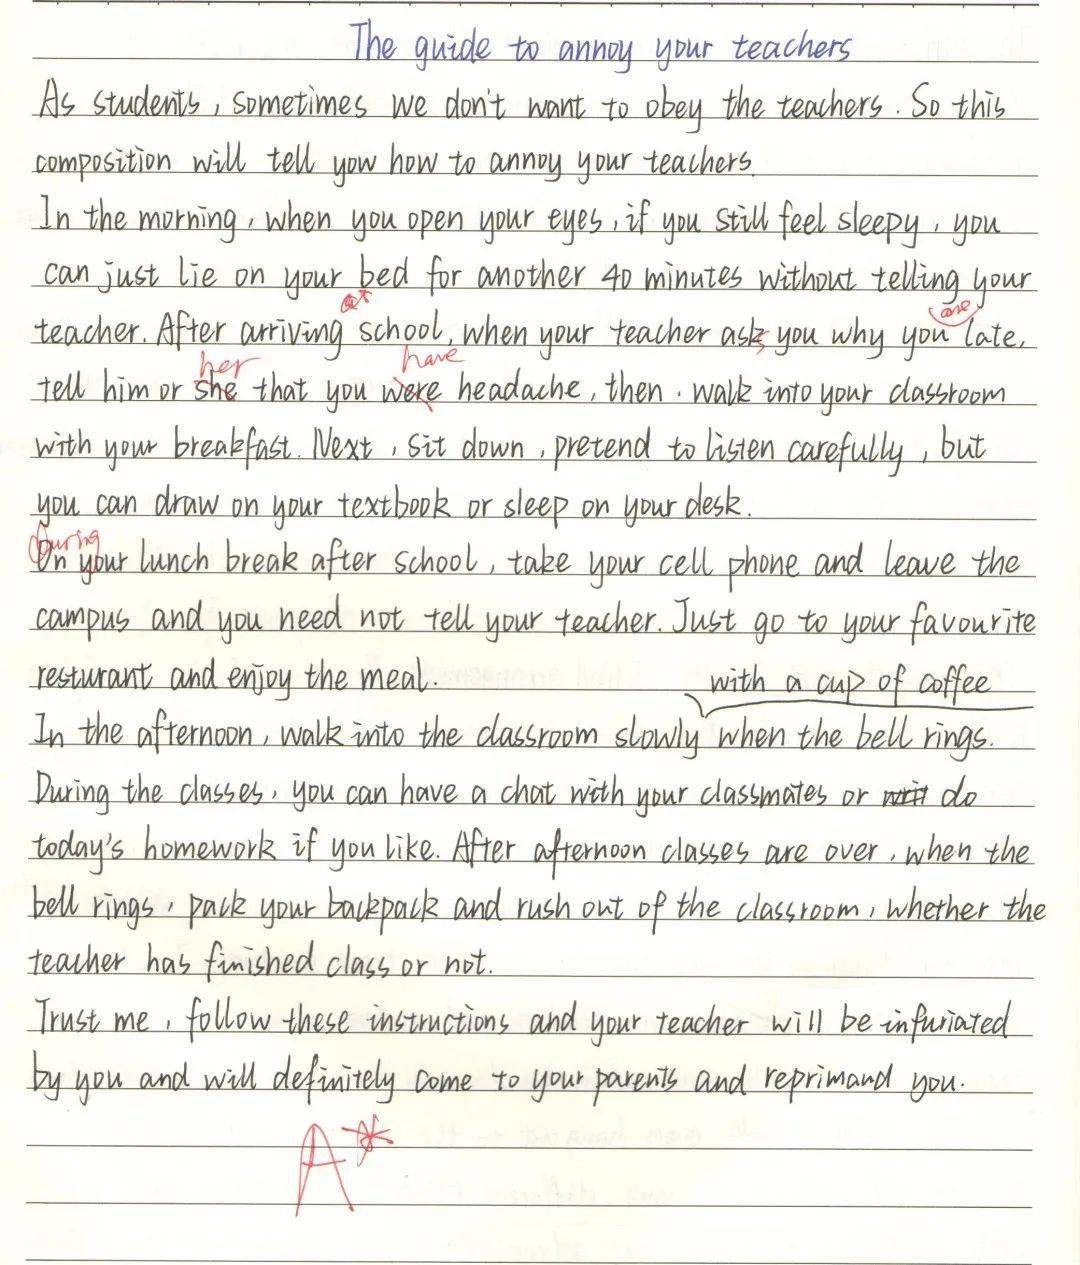 The guide to annoy your teachers
As students, sometimes we don't want to obey the teachers. So this
composition will tell you how to annoy your teachers.
In the morning, when you open your eyes, if you still feel sleepy, you
can just lie on your bed for another 40 minutes without telling your
at are
teacher. After arriving school, when your teacher asks you why you late,
her have
tell him or she that you were headache, then. walk into your classroom
with your breakfast. Next, sit down, pretend to listen carefully, but
you can draw on your textbook or sleep on your desk.
During
On your lunch break after school, take your cell phone and leave the
campus and you need not tell your teacher. Just go to your favourite
resturant and enjoy the meal.
with a cup of coffee
In the afternoon, walk into the classroom slowly when the bell rings.
During the classes, you can have a chat with your classmates or do
today's homework if you like. After afternoon classes are over, when the
bell rings, pack your backpack and rush out of the classroom, whether the
teacher has finished class or not.
Trust me, follow these instructions and your teacher will be infuriated
by you and will definitely come to your parents and reprimand you.
A*